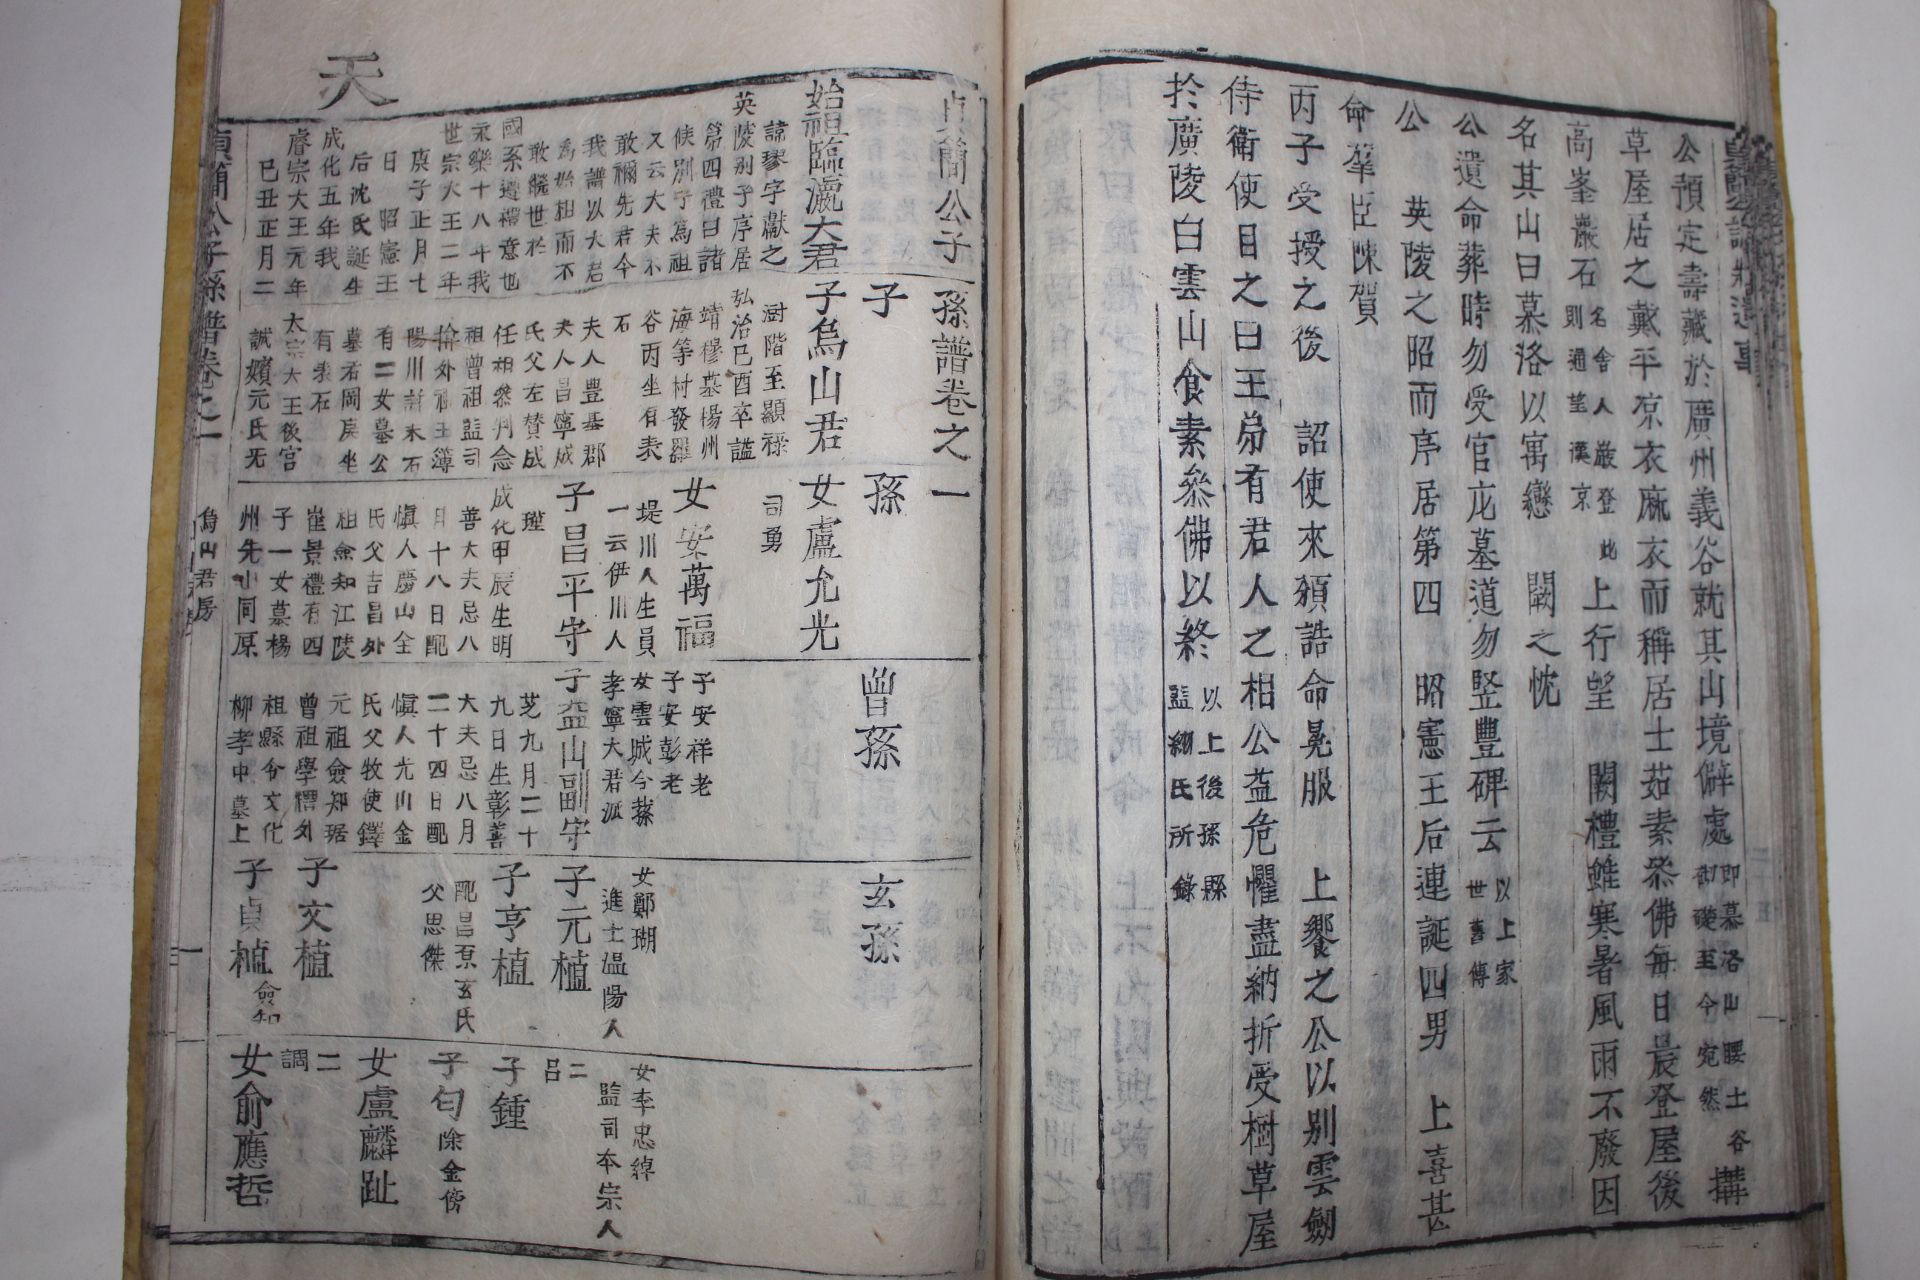 公預定壽藏於廣州義谷就其山境僻處
即慕洛山腰土谷
御礎至今宛然
搆
草屋居之戴平凉衣麻衣而稱居士茹素叅佛每日晨登屋後
高峯巖石
名舍人巖登此
則通望漢京
上行望
闕禮雖寒暑風雨不廢因
名其山曰慕洛以寓戀
闕之忱
公遺命葬時勿受官庀墓道勿竪豐碑云
以上家
世舊傳
公
英陵之昭而序居第四
昭憲王后連誕四男
上喜甚
命羣臣陳賀
丙子受授之後
詔使來頒誥命晃服
上饗之公以別雲劒
侍衛使目之曰王弟有君人之相公益危懼盡納折受樹草屋
於廣陵白雲山食素叅佛以終
以上後孫縣
監網氏所錄
貞簡公子孫譜卷之一
天
始祖臨瀛大君
諱璆字獻之
英陵别子序居
第四禮曰諸
候别子為祖
又云大夫不
敢禰先君今
我譜以大君
為始祖而不
敢繫世於
國系遵禮意也
永樂十八年我
世宗大王二年
庚子正月七
日
昭憲王
后沈氏誕生
成化五年我
睿宗大王元年
己丑正月二
子
子烏山君
澍階至顯祿
弘治己酉卒謚
靖穆墓楊州
海等村發羅
谷丙坐有表
石
夫人豊基郡
夫人昌寧成
氏父左贊成
任祖叅判念
祖曾祖監司
揜外祖主簿
陽川許末石
有二女墓公
墓右岡庚坐
有表石
太宗大王後宮
誠嬪元氏无
孫
女盧允光
司勇
女安萬福
堤川人生員
一云伊川人
子昌平守
瑆
成化甲辰生明
善大夫忌八
月十八日配
愼人慶山全
氏父吉昌外
祖僉知江陵
崔景禮有四
子一女墓楊
州先山同原
曾孫
子安祥老
子安彭老
女雲城令蓀
孝寧大君派
子益山副守
芝九月二十
九日生彰善
大夫忌八月
二十四日配
愼人光山金
氏父牧使鐸
元祖僉知琚
曾祖學㮨外
祖縣令文化
柳孝中墓上
玄孫
女鄭瑚
進士溫陽人
子元植
子亨植
配昌原玄氏
父思傑
子文植
子貞植
僉知
女李忠綽
監司本宗人
二
呂
子鍾
子匀
除金傍
女盧麟趾
二
調
女俞應哲
貞簡公子孫譜卷之一
烏山君房
一